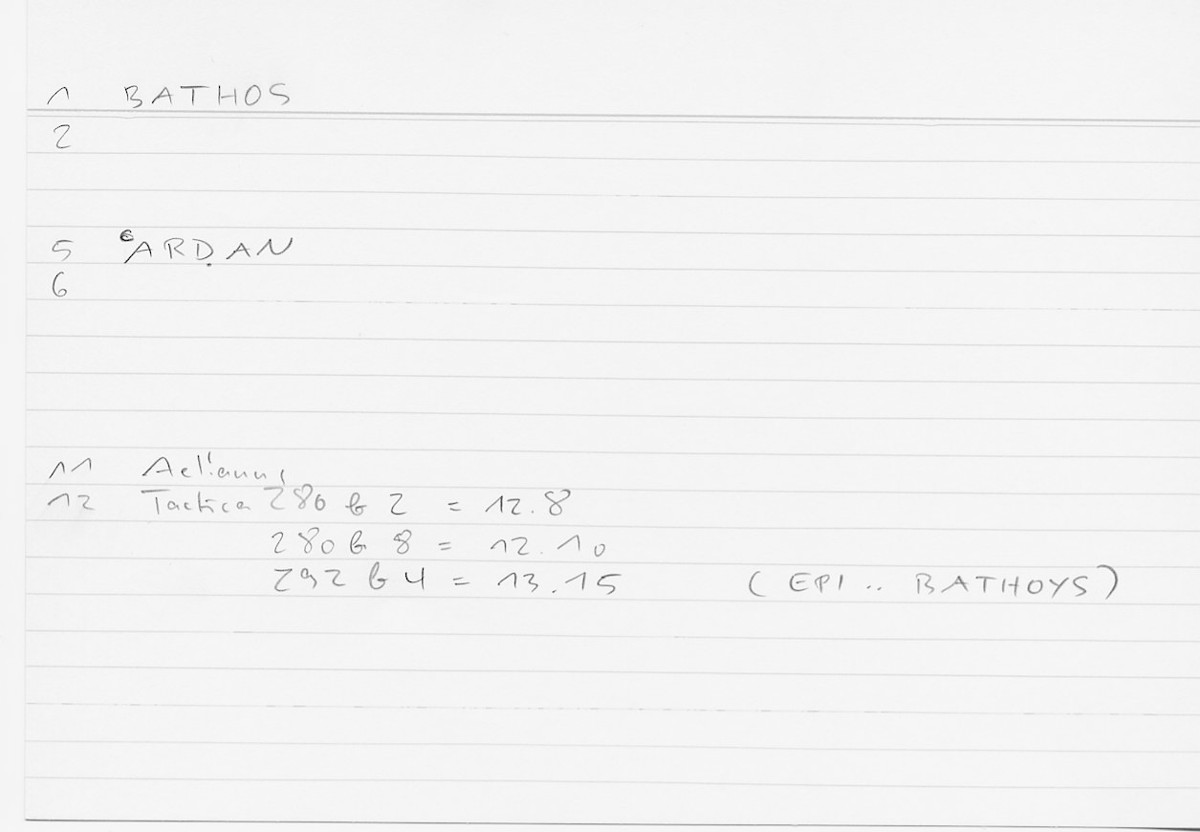 1 BATHOS
2
5 ʿARḌAN
6
11 Aelianus
12 Tactica 280 b 2 = 12.8
280 b 8 = 12.10
292 b 4 = 13.15 (EPI .. BATHOYS)